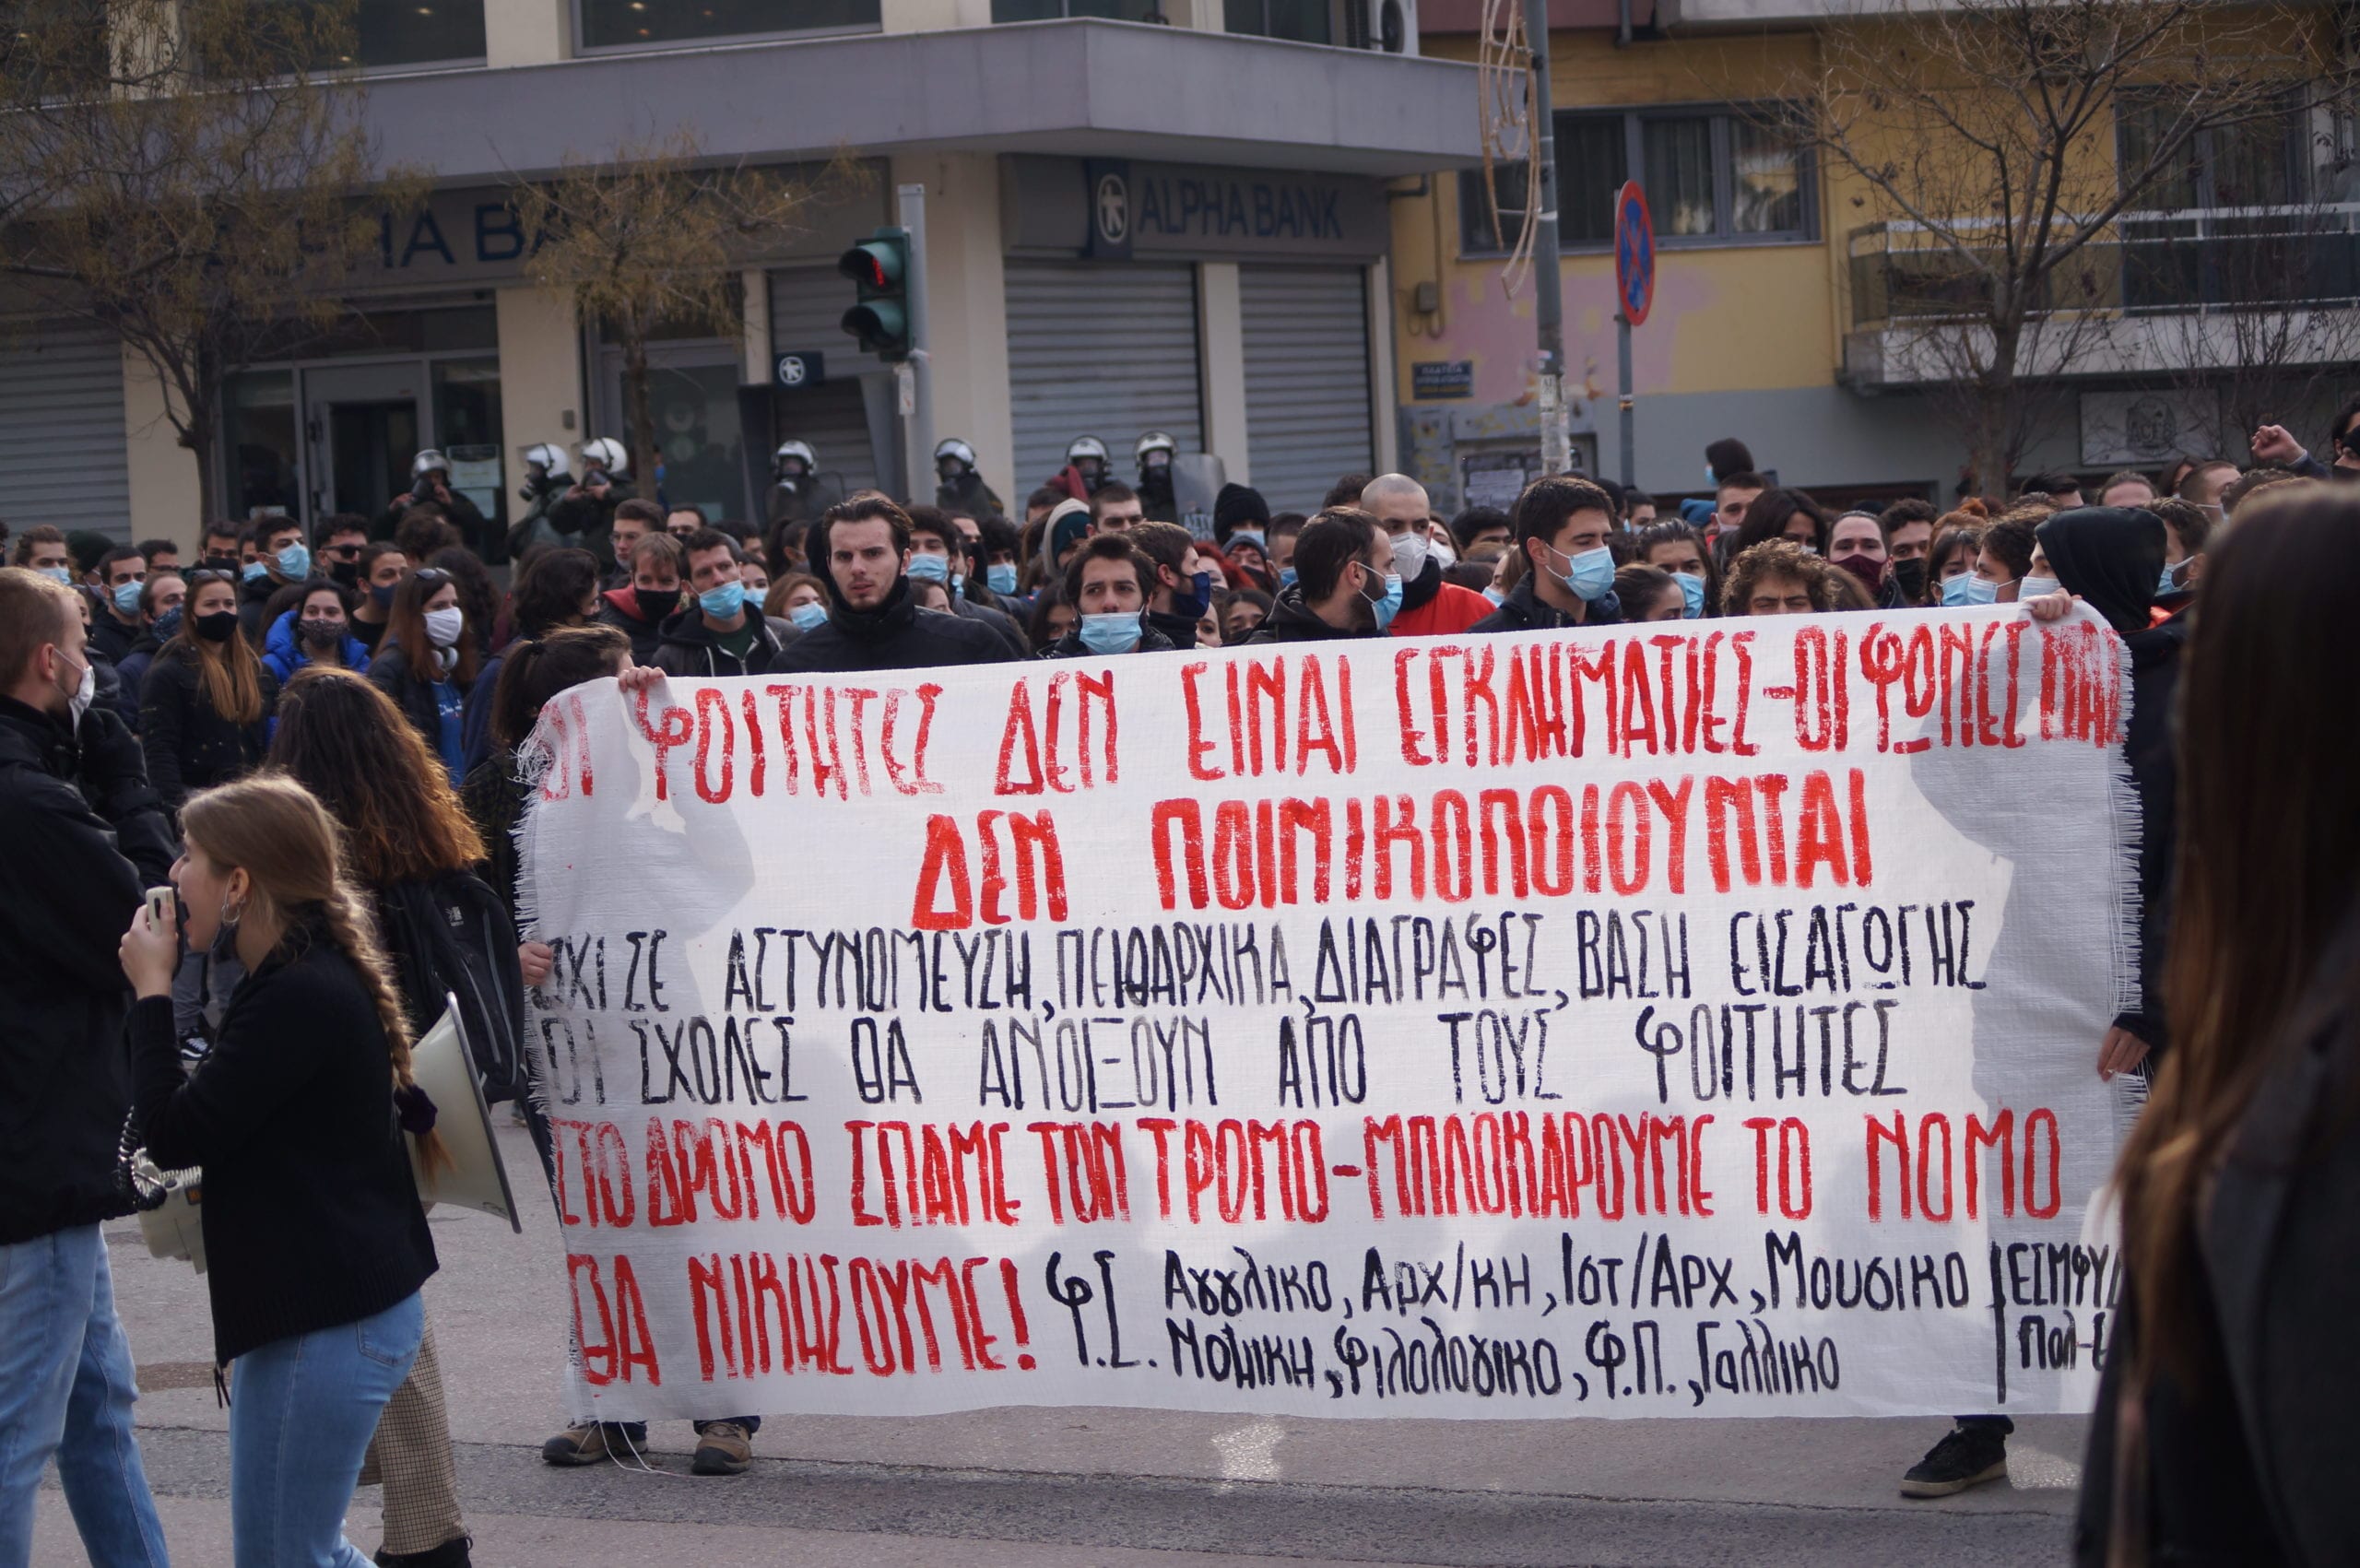 ALPHA BANK
ALPHA BANK
ΠΛΑΤΕΙΑ
ΟΙ ΦΟΙΤΗΤΕΣ ΔΕΝ ΕΙΝΑΙ ΕΓΚΛΗΜΑΤΙΕΣ-ΟΙ ΦΩΝΕΣ ΜΑΣ
ΔΕΝ ΠΟΙΝΙΚΟΠΟΙΟΥΝΤΑΙ
ΟΧΙ ΣΕ ΑΣΤΥΝΟΜΕΥΣΗ, ΠΕΙΘΑΡΧΙΚΑ, ΔΙΑΓΡΑΦΕΣ, ΒΑΣΗ ΕΙΣΑΓΩΓΗΣ
ΟΙ ΣΧΟΛΕΣ ΘΑ ΑΝΟΙΞΟΥΝ ΑΠΟ ΤΟΥΣ ΦΟΙΤΗΤΕΣ
ΣΤΟ ΔΡΟΜΟ ΣΠΑΜΕ ΤΟΝ ΤΡΟΜΟ-ΜΠΛΟΚΑΡΟΥΜΕ ΤΟ ΝΟΜΟ
ΘΑ ΝΙΚΗΣΟΥΜΕ! Φ.Σ. Αγγλικο, Αρχ/κη, Ιστ/Αρχ, Μουσικο | ΕΣΜΦΥΔ
Νομικη, Φιλολογικο, Φ.Π., Γαλλικο Πολ-